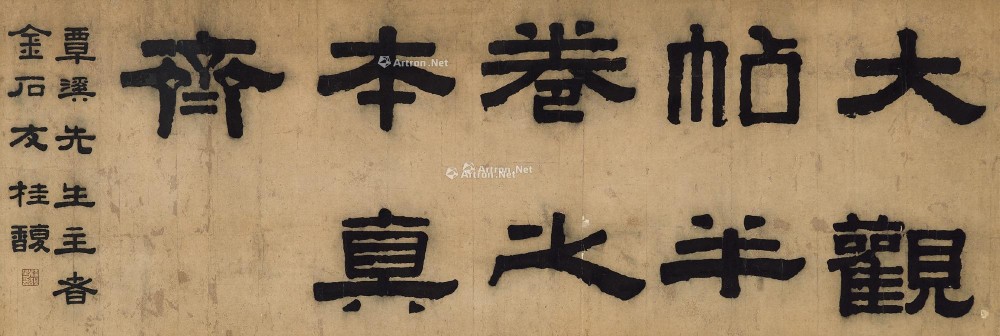 大觀
帖半
卷之
本真
齊
覃溪先生主者
金石友桂馥
Artron.Net
Artron.Net
Artron.Net
Artron.Net